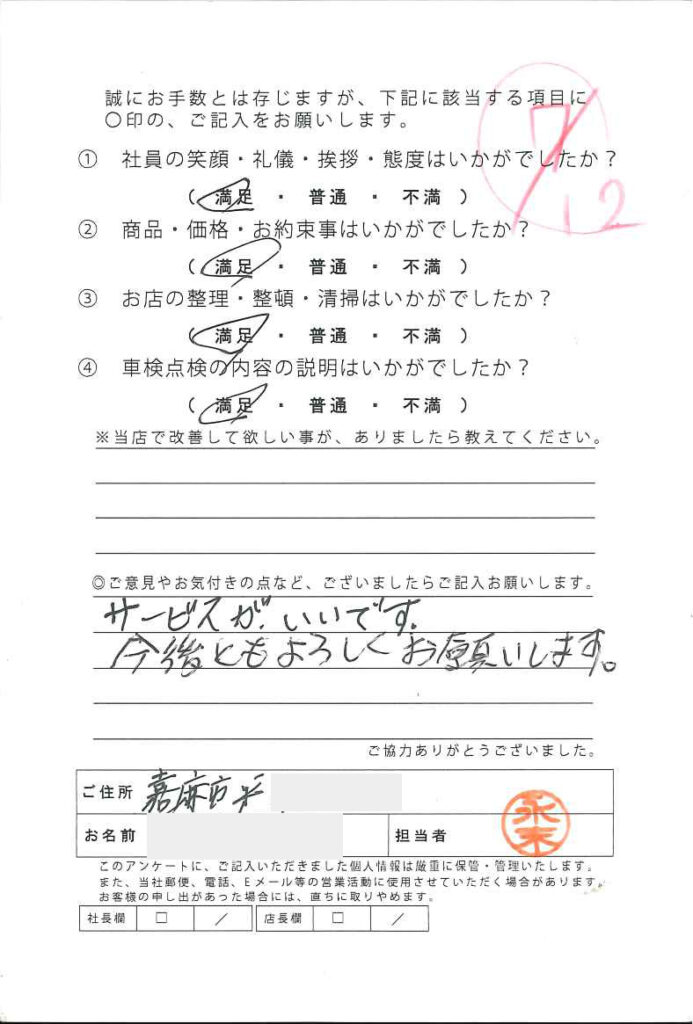 誠にお手数とは存じますが、下記に該当する項目に
〇印の、ご記入をお願いします。
7/12
① 社員の笑顔・礼儀・挨拶・態度はいかがでしたか？
( 満足 ・ 普通 ・ 不満 )
② 商品・価格・お約束事はいかがでしたか？
( 満足 ・ 普通 ・ 不満 )
③ お店の整理・整頓・清掃はいかがでしたか？
( 満足 ・ 普通 ・ 不満 )
④ 車検点検の内容の説明はいかがでしたか？
( 満足 ・ 普通 ・ 不満 )
※当店で改善して欲しい事が、ありましたら教えてください。
◎ご意見やお気付きの点など、ございましたらご記入お願いします。
サービスが、いいです。
今後ともよろしくお願いします。
ご協力ありがとうございました。
ご住所 嘉麻市
お名前 担当者 永末
このアンケートに、ご記入いただきました個人情報は厳重に保管・管理いたします。
また、当社郵便、電話、Eメール等の営業活動に使用させていただく場合があります。
お客様の申し出があった場合には、直ちに取りやめます。
社長欄 □ ／ 店長欄 □ ／